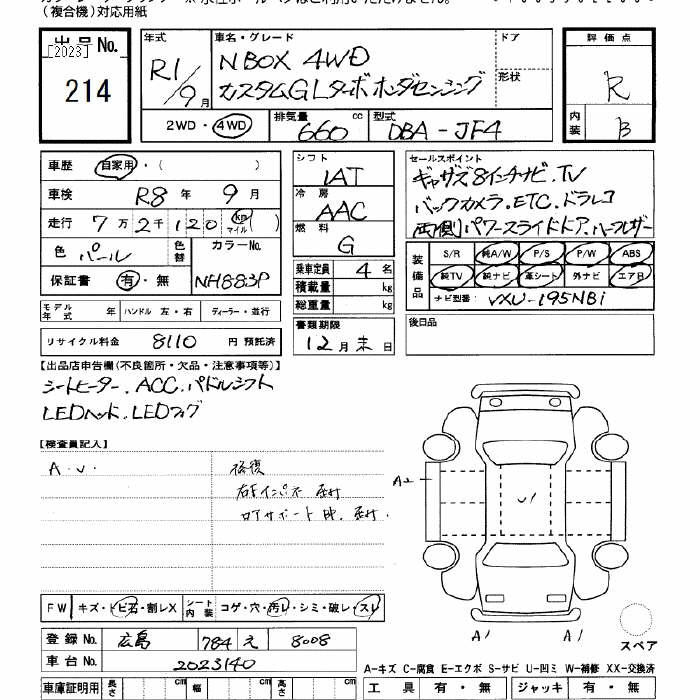 （複合機）対応用紙
出品No.
[2023]
214
年式
R1/9月
車名・グレード
NBOX 4WD
カスタムGLターボホンダセンシング
ドア
形状
評価点
R
内装
B
2WD・4WD
排気量
660 cc
型式
DBA-JF4
車歴 自家用・( )
車検 R8年 9月
走行 7万2千120 km マイル ( )
色 パール 色替 カラーNo.
保証書 有・無 NH883P
シフト
IAT
冷房
AAC
燃料
G
乗車定員 4名
積載量 kg
総重量 kg
書類期限
12月末日
セールスポイント
ギャザズ8インチナビ.TV
バックカメラ.ETC.ドラレコ
両側パワースライドドア.ハーフレザー
装備品
S/R 純A/W P/S P/W ABS
純TV 純ナビ 革シート 外ナビ エアB
ナビ型番: VXU-195NBi
後日品
モデル年式 年 ハンドル 左・右 ディーラー・並行
リサイクル料金 8110 円 預託済
【出品店申告欄(不良箇所・欠品・注意事項等)】
シートヒーター.ACC.パドルシフト
LEDヘッド.LEDフォグ
【検査員記入】
A・U・
修復
A2
U1
A1 A1
スペア
FW キズ・トビ石・割レX シート内装 コゲ・穴・汚レ・シミ・破レ・スレ
登録No. 広島 784 え 8008
車台No. 2023140
A-キズ C-腐食 E-エクボ S-サビ U-凹ミ W-補修 XX-交換済
車庫証明用 長さ cm 幅 cm 高さ cm
工具 有・無 ジャッキ 有・無